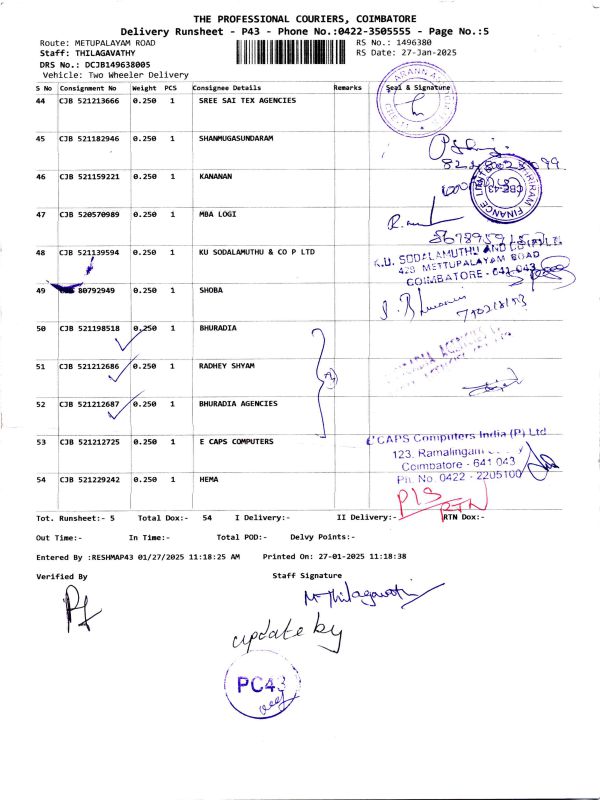 THE PROFESSIONAL COURIERS, COIMBATORE
Delivery Runsheet - P43 - Phone No.:0422-3505555 - Page No.:5
Route: METUPALAYAM ROAD RS No.: 1496380
Staff: THILAGAVATHY RS Date: 27-Jan-2025
DRS No.: DCJB149638005
Vehicle: Two Wheeler Delivery
S No Consignment No Weight PCS Consignee Details Remarks Seal & Signature
44 CJB 521213666 0.250 1 SREE SAI TEX AGENCIES
45 CJB 521182946 0.250 1 SHANMUGASUNDARAM
46 CJB 521159221 0.250 1 KANANAN
CBE-43
SHRIRAM FINANCE LIMITED
47 CJB 520570989 0.250 1 MBA LOGI
48 CJB 521139594 0.250 1 KU SODALAMUTHU & CO P LTD
K.U. SODALAMUTHU AND CO (P) LTD
428 METTUPALAYAM ROAD
COIMBATORE - 641 043
49 80792949 0.250 1 SHOBA
50 CJB 521198518 0.250 1 BHURADIA
51 CJB 521212686 0.250 1 RADHEY SHYAM
52 CJB 521212687 0.250 1 BHURADIA AGENCIES
53 CJB 521212725 0.250 1 E CAPS COMPUTERS
E'CAPS Computers India (P) Ltd
123, Ramalingam
Coimbatore - 641 043
Ph. No. 0422 - 2205100
54 CJB 521229242 0.250 1 HEMA
RTN
Tot. Runsheet:- 5 Total Dox:- 54 I Delivery:- II Delivery:- RTN Dox:-
Out Time:- In Time:- Total POD:- Delvy Points:-
Entered By :RESHMAP43 01/27/2025 11:18:25 AM Printed On: 27-01-2025 11:18:38
Verified By Staff Signature
M Thilagavathi
update by
PC43